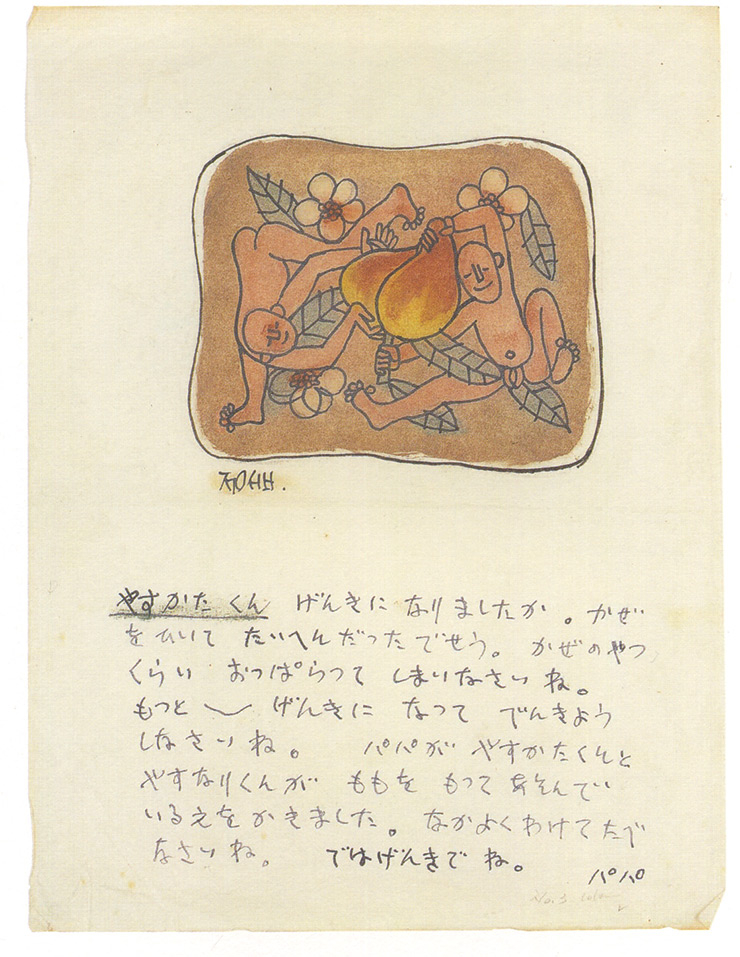 ㅈㅜㅇㅅㅓㅂ.
やすかたくん げんきに なりましたか。かぜ
を ひいて たいへんだったでせう。 かぜのやつ
くらい おっぱらつて しまいなさいね。
もつと〳〵 げんきに なって べんきよう
しなさいね。 パパが やすかたくんと
やすなりくんが ももを もつて あそんで
いるえをかきました。なかよくわけてたべ
なさいね。 ではげんきでね。
パパ
No. 3